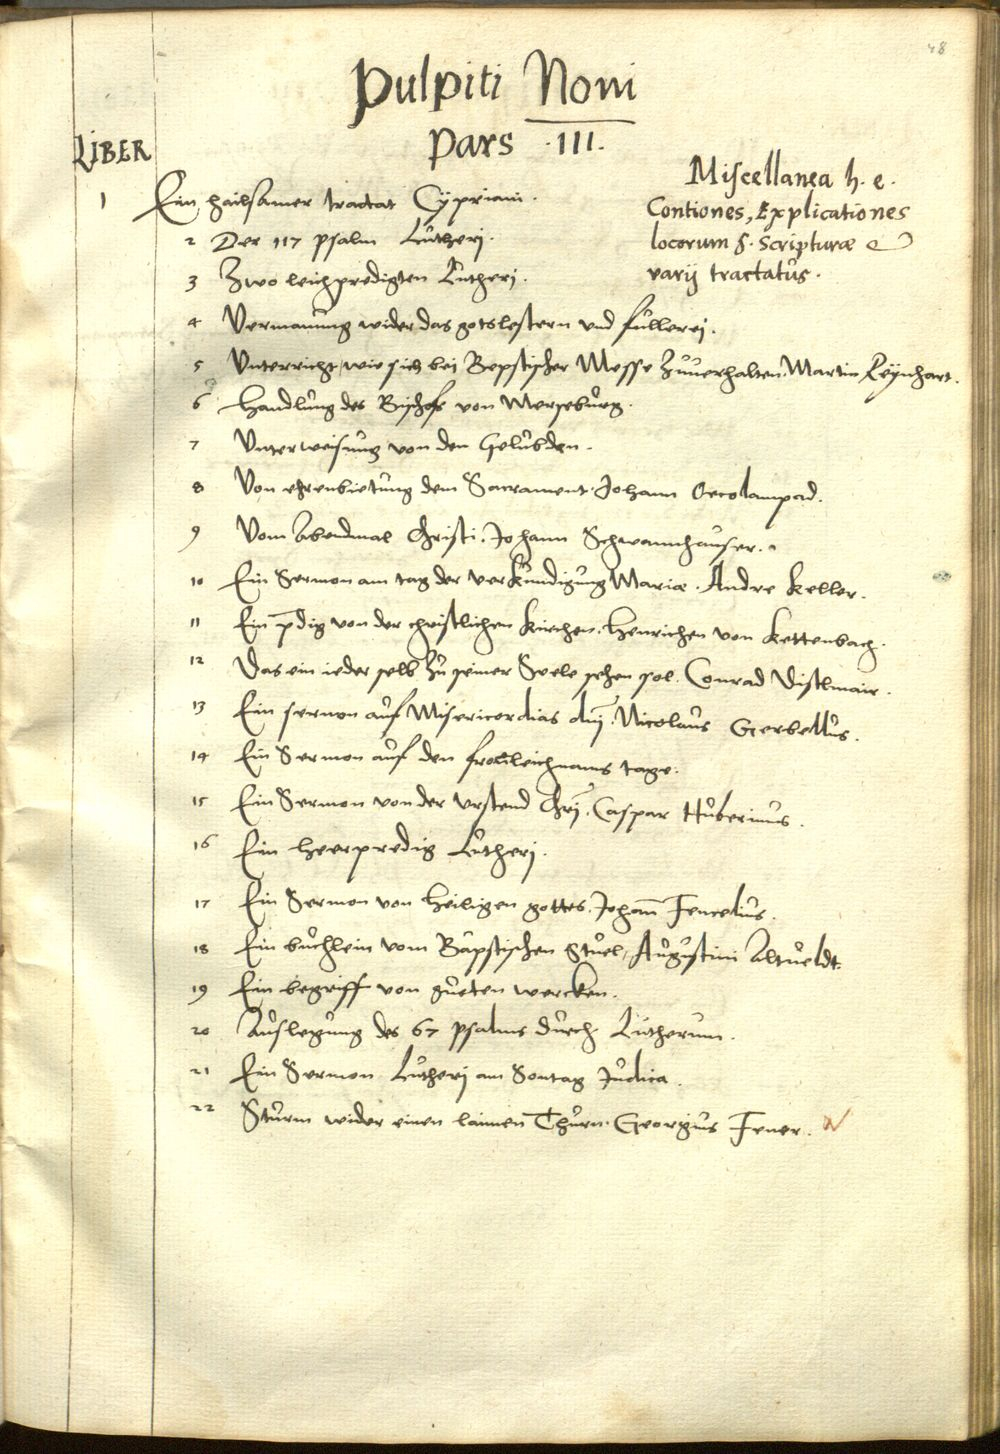 48
Pulpiti Noni
Pars .III.
LIBER
Miscellanea h. e.
Contiones, Explicationes
locorum S. Scripturæ &
varij tractatus.
1 Ein hailsamer tractat Cypriani.
2 Der 117 psalm Lutherj.
3 Zwo leichpredigten Lutherj.
4 Vermanung wider das gotslestern und füllerej.
5 Unterricht, wie sich bei Bepstischer Messe zuuerhalten. Martin Reÿnhart.
6 Handlung des Bischofs von Merseburg.
7 Unterweisung von den Gelübden.
8 Von ehrenbietung dem Sacrament. Johann Oecolampad.
9 Vom Abendmal Christi. Johann Schwannhauser.
10 Ein Sermon am tag der verkundigung Mariæ. Andre Keller.
11 Ein p̄dig von der christlichen kirchen. Henrichen von Kettenbach.
12 Das ein ieder selb zu seiner Seele sehen sol. Conrad Distlmair.
13 Ein sermon auf Misericordias dnj. Nicolaus Gerbellus.
14 Ein Sermon auf den fronleichnams tage.
15 Ein Sermon von der Urstend Chrj. Caspar Huberinus.
16 Ein heerpredig Lutherj.
17 Ein Sermon von Heiligen gottes. Johan̄ Fencelius.
18 Ein buchlein vom Bäpstischen Stuel, Augustini Altueldt.
19 Ein begriff von gueten wercken.
20 Auslegung des 67 psalms durch Lutherum.
21 Ein Sermon Lutherj am Sontag Judica.
22 Sturm wider einen laimen Thurn. Georgius Fener.